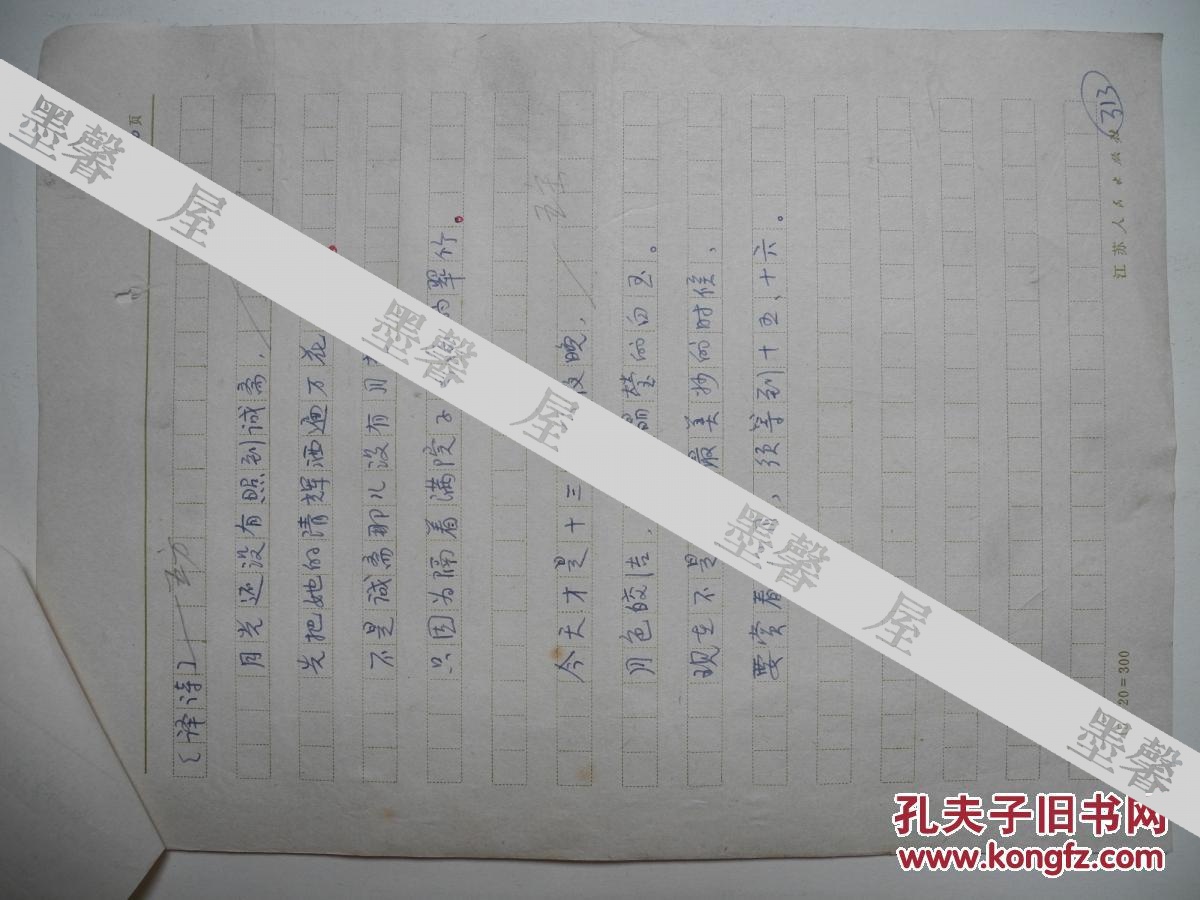 页
〔译诗〕
月光还没有照到诚斋，
先把她的清辉洒遍万花
不是诚斋那儿没有月
只因为隔着满院子 的翠竹。
今天才是十三 夜晚，
月色皎洁， 晶莹的白玉。
现在不是 最美妙的时候，
要赏看 ，须等到十五、十六。
江苏人民出版社
313
20=300
墨馨 屋
墨馨 屋
墨馨 屋
墨馨 屋
墨馨
孔夫子旧书网
www.kongfz.com